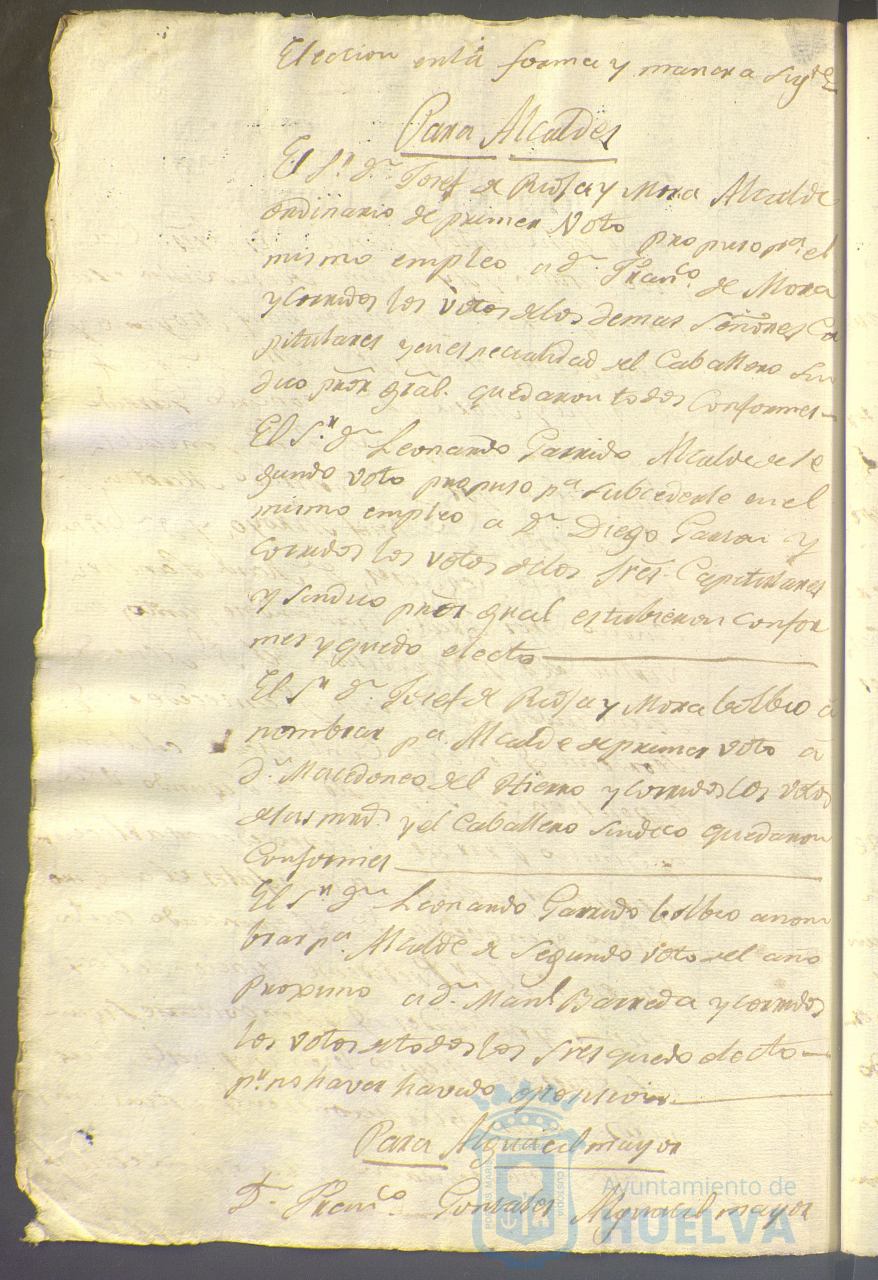 Eleccion enla forma y manera sigte
Para Alcaldes
El Sr. Dn Josef de Rioja y Mora Alcalde
ordinario de primer Voto propuso pa. el
mismo empleo a Dn. Franco. de Mora
y corridos los Votos delos demas Señores Ca
pitulares y en especialidad del Caballero Sin
dico prõr grãl. quedaron todos Conformes
El Sr. Dn Leonardo Garrido Alcalde de se
gundo voto propuso pa subcederle en el
mismo empleo a Dn Diego Garzon y
corridos los votos delos Sres. Capitulares
y Sindico prõr gral estubieron confor
mes y quedo electo
El Sr Dn Josef de Rioja y Mora bolbio a
nombrar pa. Alcalde de primer voto a
Dn. Macedoneo del Hierro y corridos los votos
de sus mrds. y el Caballero Sindico quedaron
Conformes
El Sr Dn Leonardo Garrido bolbio a nom
brar pa. Alcalde de Segundo voto del año
Proximo a Dn. Manl Barreda y corridos
los votos de todos los Sres quedo electo
pr. no haver havido oposicion
Para Alguacil mayor
Dn. Franco. Gonzales Alguacil mayor
Ayuntamiento de
HUELVA